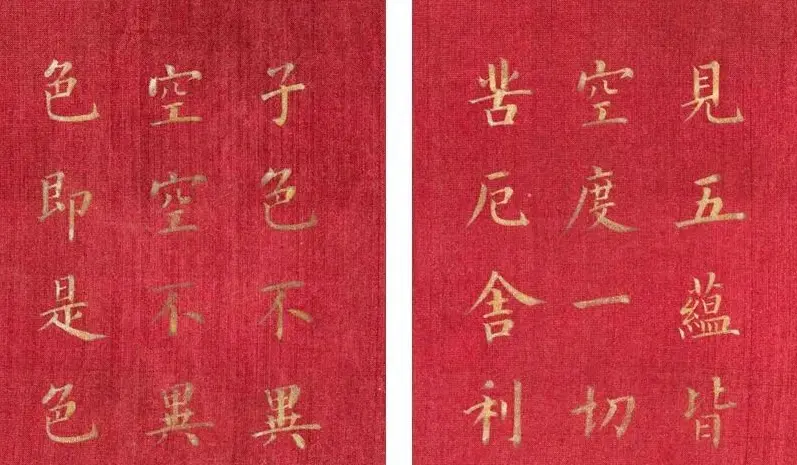 見五蘊皆
空度一切
苦厄舍利
子色不異
空空不異
色即是色